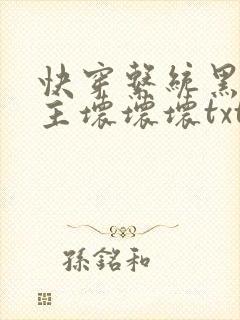 快穿繫統黑
主壞壞壞txt
孫銘和